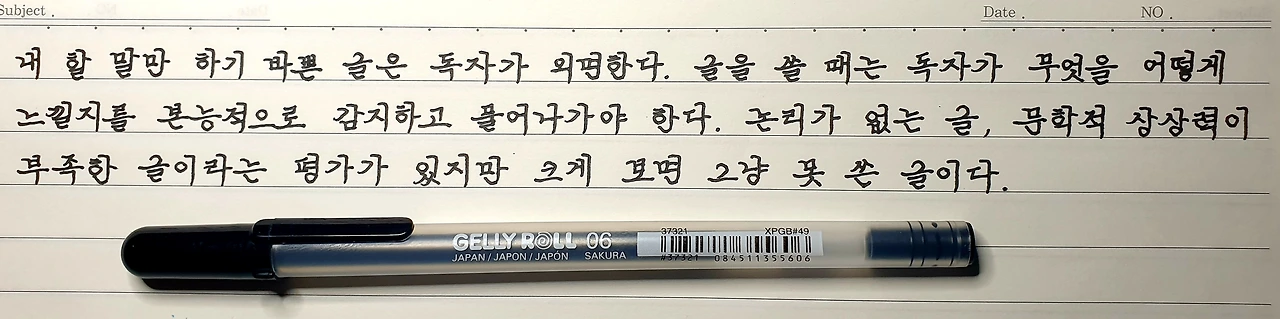 Subject .
Date .
NO .
내 할 말만 하기 바쁜 글은 독자가 외면한다. 글을 쓸 때는 독자가 무엇을 어떻게
느낄지를 본능적으로 감지하고 풀어나가야 한다. 논리가 없는 글, 문학적 상상력이
부족한 글이라는 평가가 있지만 크게 보면 그냥 못 쓴 글이다.
GELLY ROLL 06
JAPAN / JAPON / JAPÓN SAKURA
37321 XPGB#49
#37321 084511355606